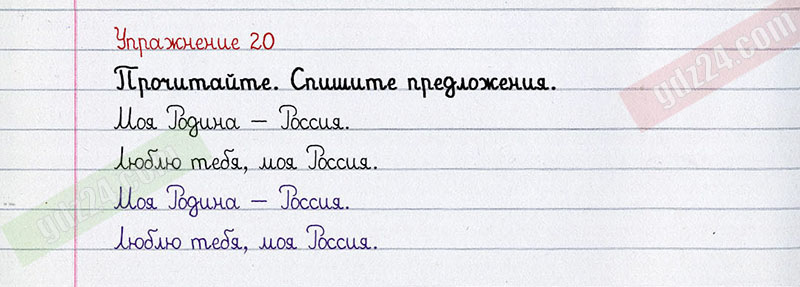 Упражнение 20
Прочитайте. Спишите предложения.
Моя Родина — Россия.
Люблю тебя, моя Россия.
Моя Родина — Россия.
Люблю тебя, моя Россия.
gdz24.com
gdz24.com